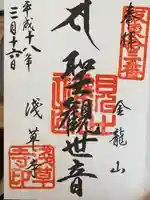 奉拝
金龍山
聖観世音
浅草寺
平成十八年
三月十六日
浅草寺印